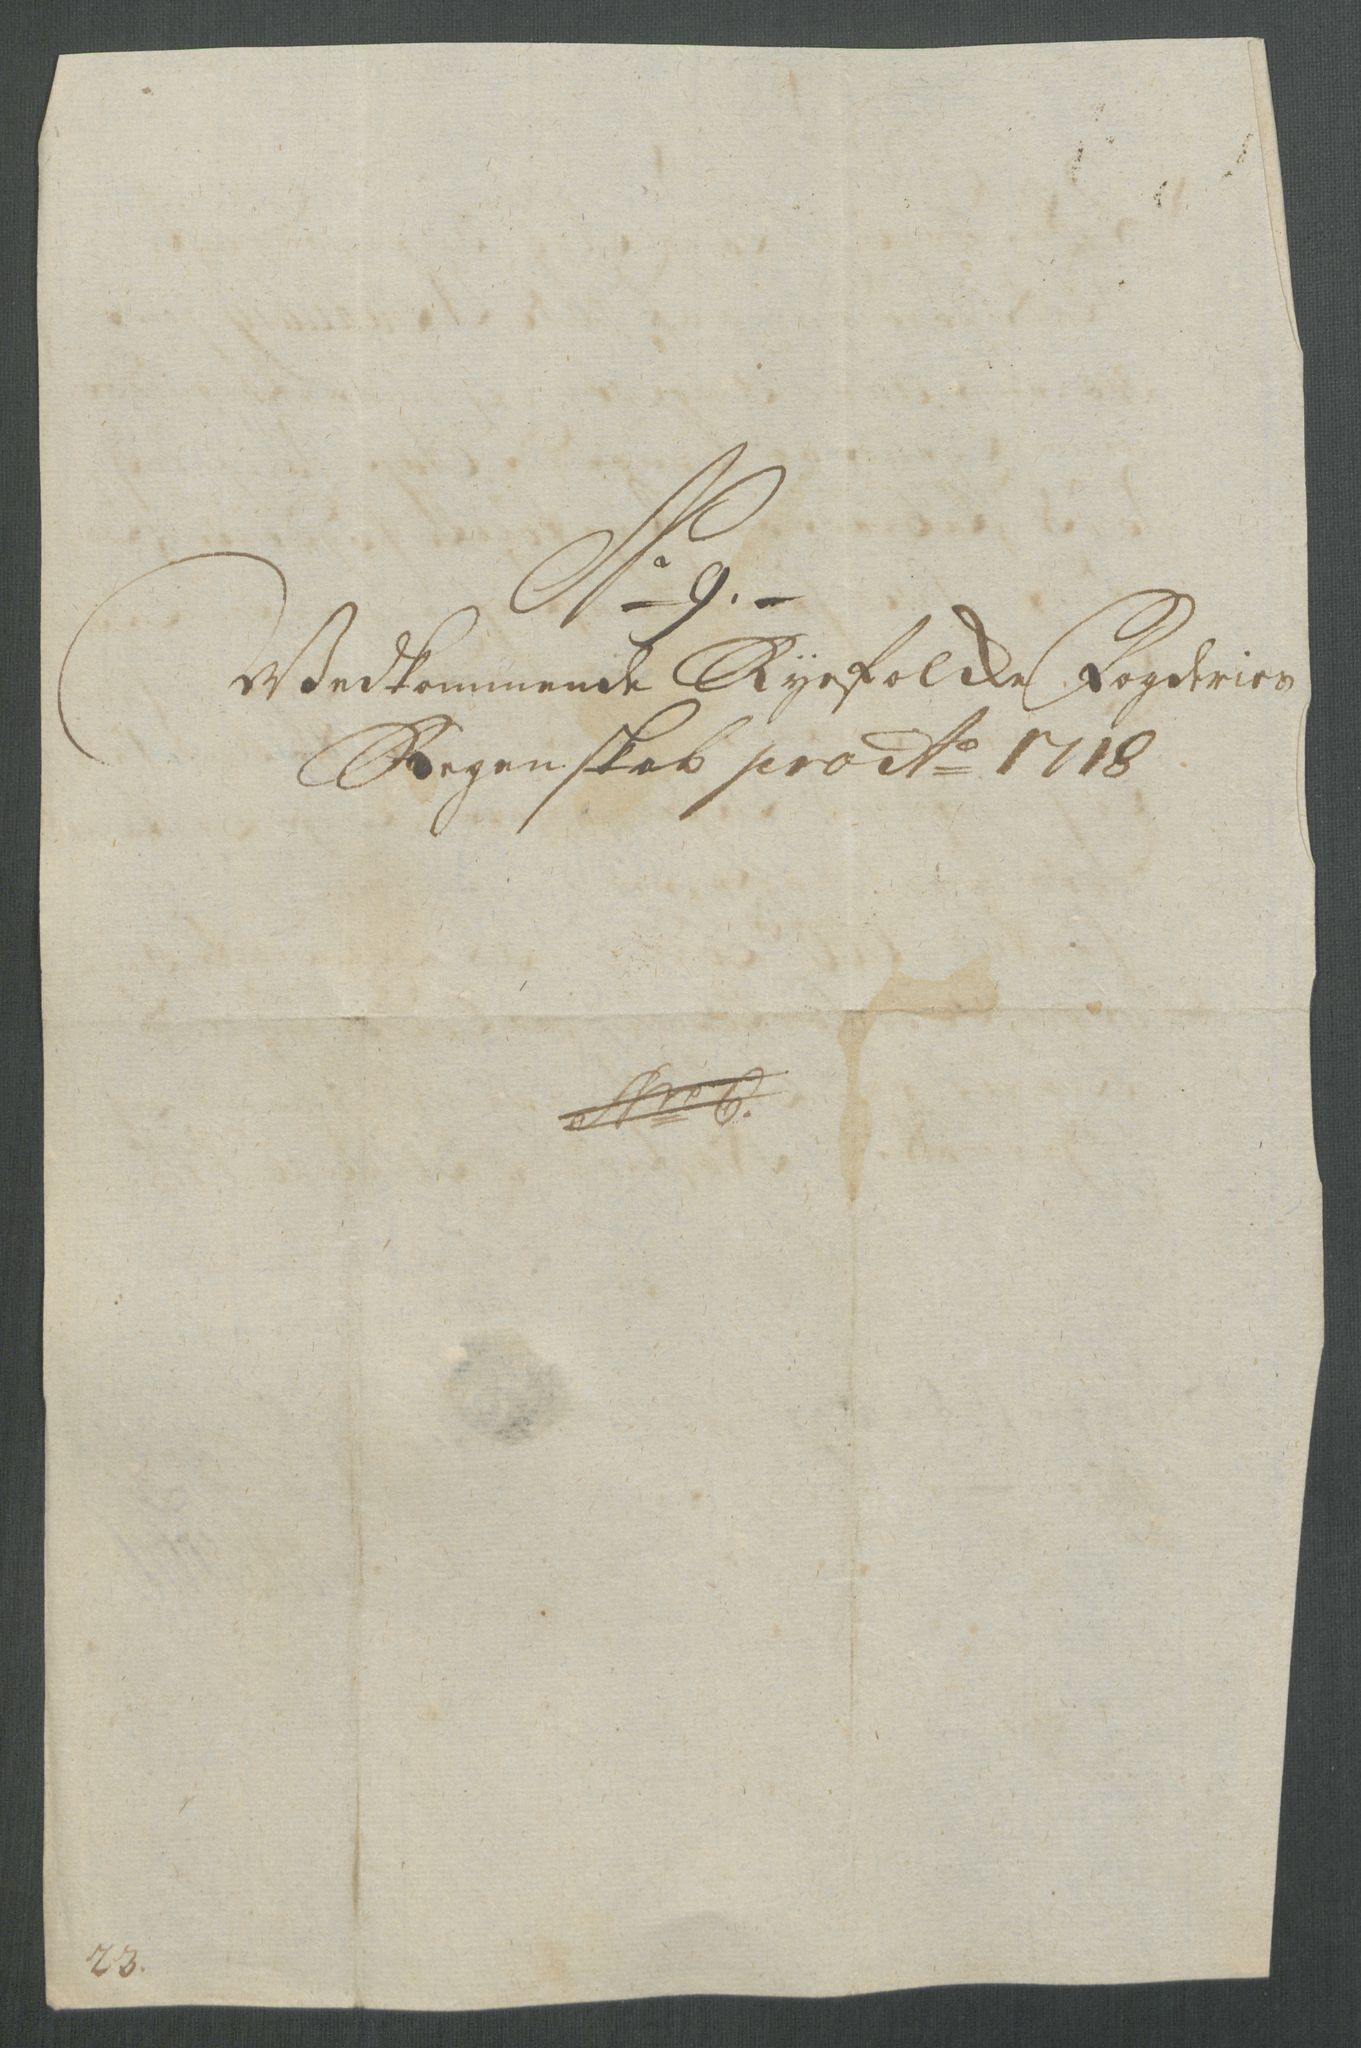 No 9.
Vedkommende Ryefolche Fogderies
Regenskab pro Ao 1718
No 6.
23.